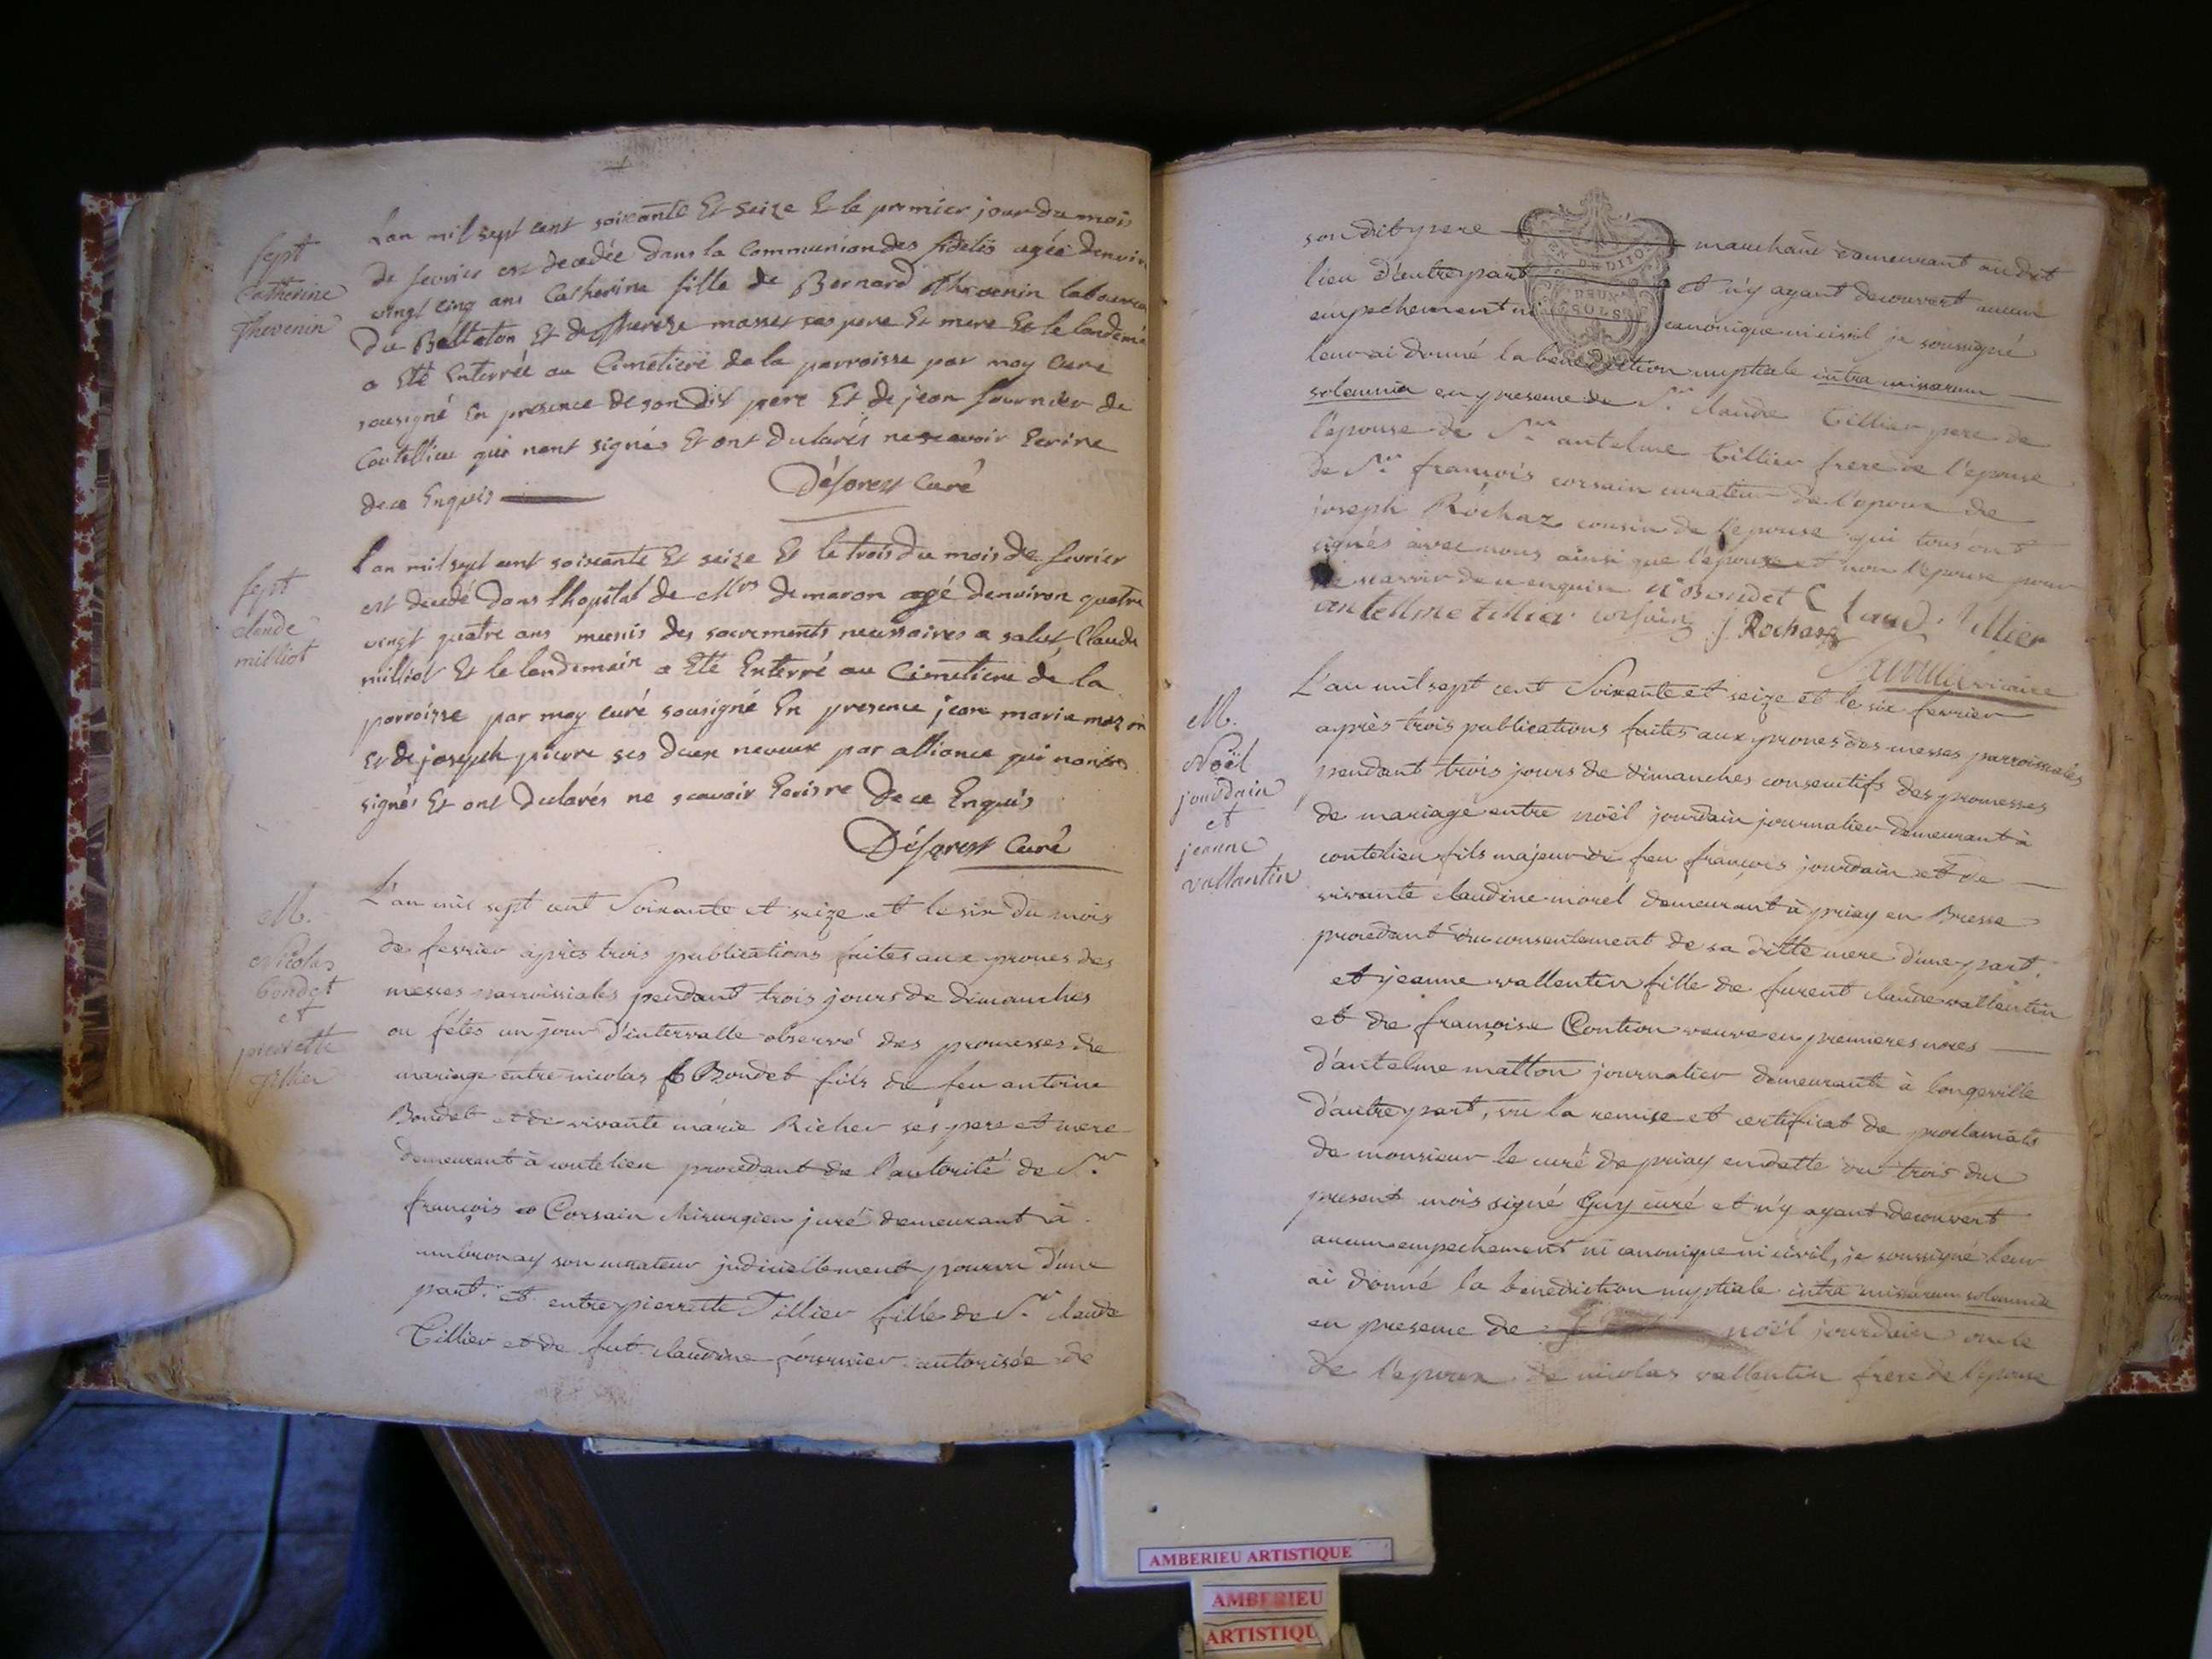 sept
Catherine
Thevenin
L'an mil sept cent soixante Et seize Et le premier jour du mois
de fevrier est decedée dans la Communion des fideles agée denviron
vingt cinq ans Catherine fille de Bernard Thevenin laboureur
Du Et de therese masset ses pere Et mere Et le landemain
a Eté Enterrée au Cimetiere de la parroisse par moy Curé
sousigné En presence de son Dit pere Et de jean fournier de
Coutellieu qui nont signés Et ont declarés ne scavoir Ecrire
de ce Enquis
Déforest Curé
sept
claude
milliot
l'an mil sept cent soixante Et seize Et le trois du mois de fevrier
est decedé dans lhopital de Mrs agé denviron quatre
vingt quatre ans munis des sacrements necessaires a salut, Claude
milliot Et le landemain a Eté Enterré au Cimetiere de la
parroisse par moy curé sousigné En presence jean marie
Et de joseph ses deux neveux par alliance qui nont
signés Et ont declarés ne scavoir Ecrire De ce Enquis
Déforest Curé
M.
Nicolas
bondet
et
pierrette
Tillier
L'an mil sept cent Soixante et seize et le six du mois
de fevrier après trois publications faites aux prones des
messes parroissiales pendant trois jours de dimanches
ou fêtes un jour d'intervalle observé des promesses de
mariage entre nicolas Bondet fils de feu antoine
Bondet et de vivante marie Richer ses pere et mere
demeurant à coutelieu procedant de l'autorité de Sr
françois Corsain chirurgien juré demeurant à
ambronay son curateur judiciellement pourvu d'une
part. et entre pierrette Tillier fille de Sr claude
Tillier et de fut claudine fournier autorisée de
son dit pere marchand demeurant au dit
lieu d'autre part et n'y ayant decouvert aucun
DEUX
SOLS
empechement ni canonique ni civil je soussigné
leur ai donné la benediction nuptiale intra missarum
solemnia en presence de Sr claude Tillier pere de
l'epouse de Sr antelme tillier frere de l'epouse
de Sr françois corsain curateur de l'epoux de
joseph Rochaz cousin de l'epouse qui tous ont
signés avec nous ainsi que l'epoux et non l'epouse pour
ne scavoir de ce enquise n Bondet Claude tillier
antellme tillier corsain J. Rochaz
vicaire
M.
Noël
jourdain
et
jeanne
vallantin
L'an mil sept cent Soixante et seize et le six fevrier
après trois publications faites aux prones des messes parroissiales
pendant trois jours de dimanches consecutifs des promesses
de mariage entre noël jourdain journalier demeurant à
coutelieu fils majeur de feu françois jourdain et de
vivante claudine morel demeurant à priay en Bresse
procedant du consentement de sa ditte mere d'une part.
et jeanne vallentin fille de furent claude vallentin
et de françoise Contion veuve en premieres noces
d'antelme matton journalier demeurante à longeville
d'autre part, vu la remise et certificat de proclamats
de monsieur le curé de priay en datte du trois du
present mois signé Guy curé et n'y ayant decouvert
aucun empechement ni canonique ni civil, je soussigné leur
ai donné la benediction nuptiale intra missarum solemnia
en presence de noël jourdain oncle
de l'epoux de nicolas vallentin frere de l'epouse
AMBERIEU ARTISTIQUE
AMBERIEU
ARTISTIQU